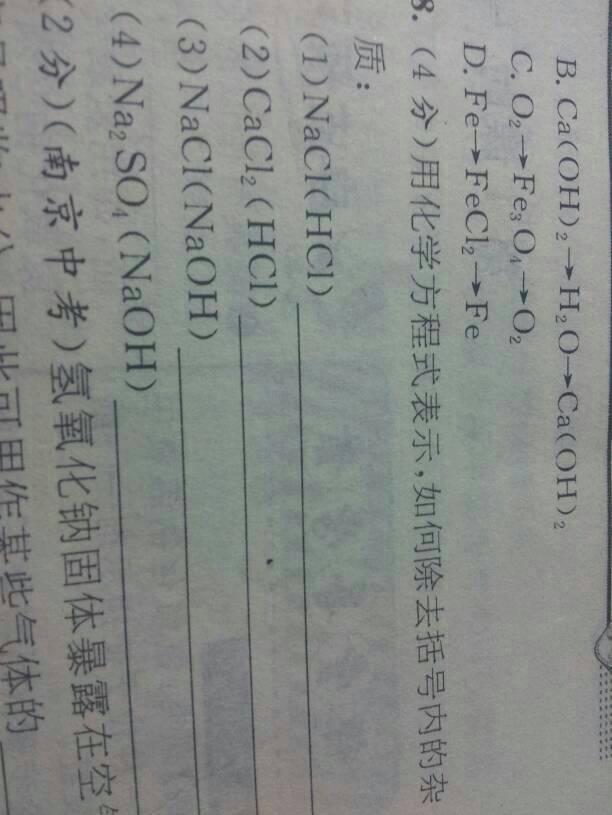 B. Ca(OH)₂→H₂O→Ca(OH)₂
C. O₂→Fe₃O₄→O₂
D. Fe→FeCl₂→Fe
8. (4 分)用化学方程式表示,如何除去括号内的杂
质:
(1)NaCl(HCl)
(2)CaCl₂(HCl)
(3)NaCl(NaOH)
(4)Na₂SO₄(NaOH)
(2 分)(南京中考)氢氧化钠固体暴露在空
因此可用作某些气体的